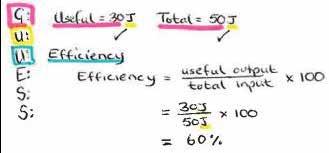 G: Useful = 30J Total = 50J
U: ✓ ✓
U: Efficiency
E: Efficiency = useful output / total input × 100
S:
S: = 30J / 50J × 100
= 60%